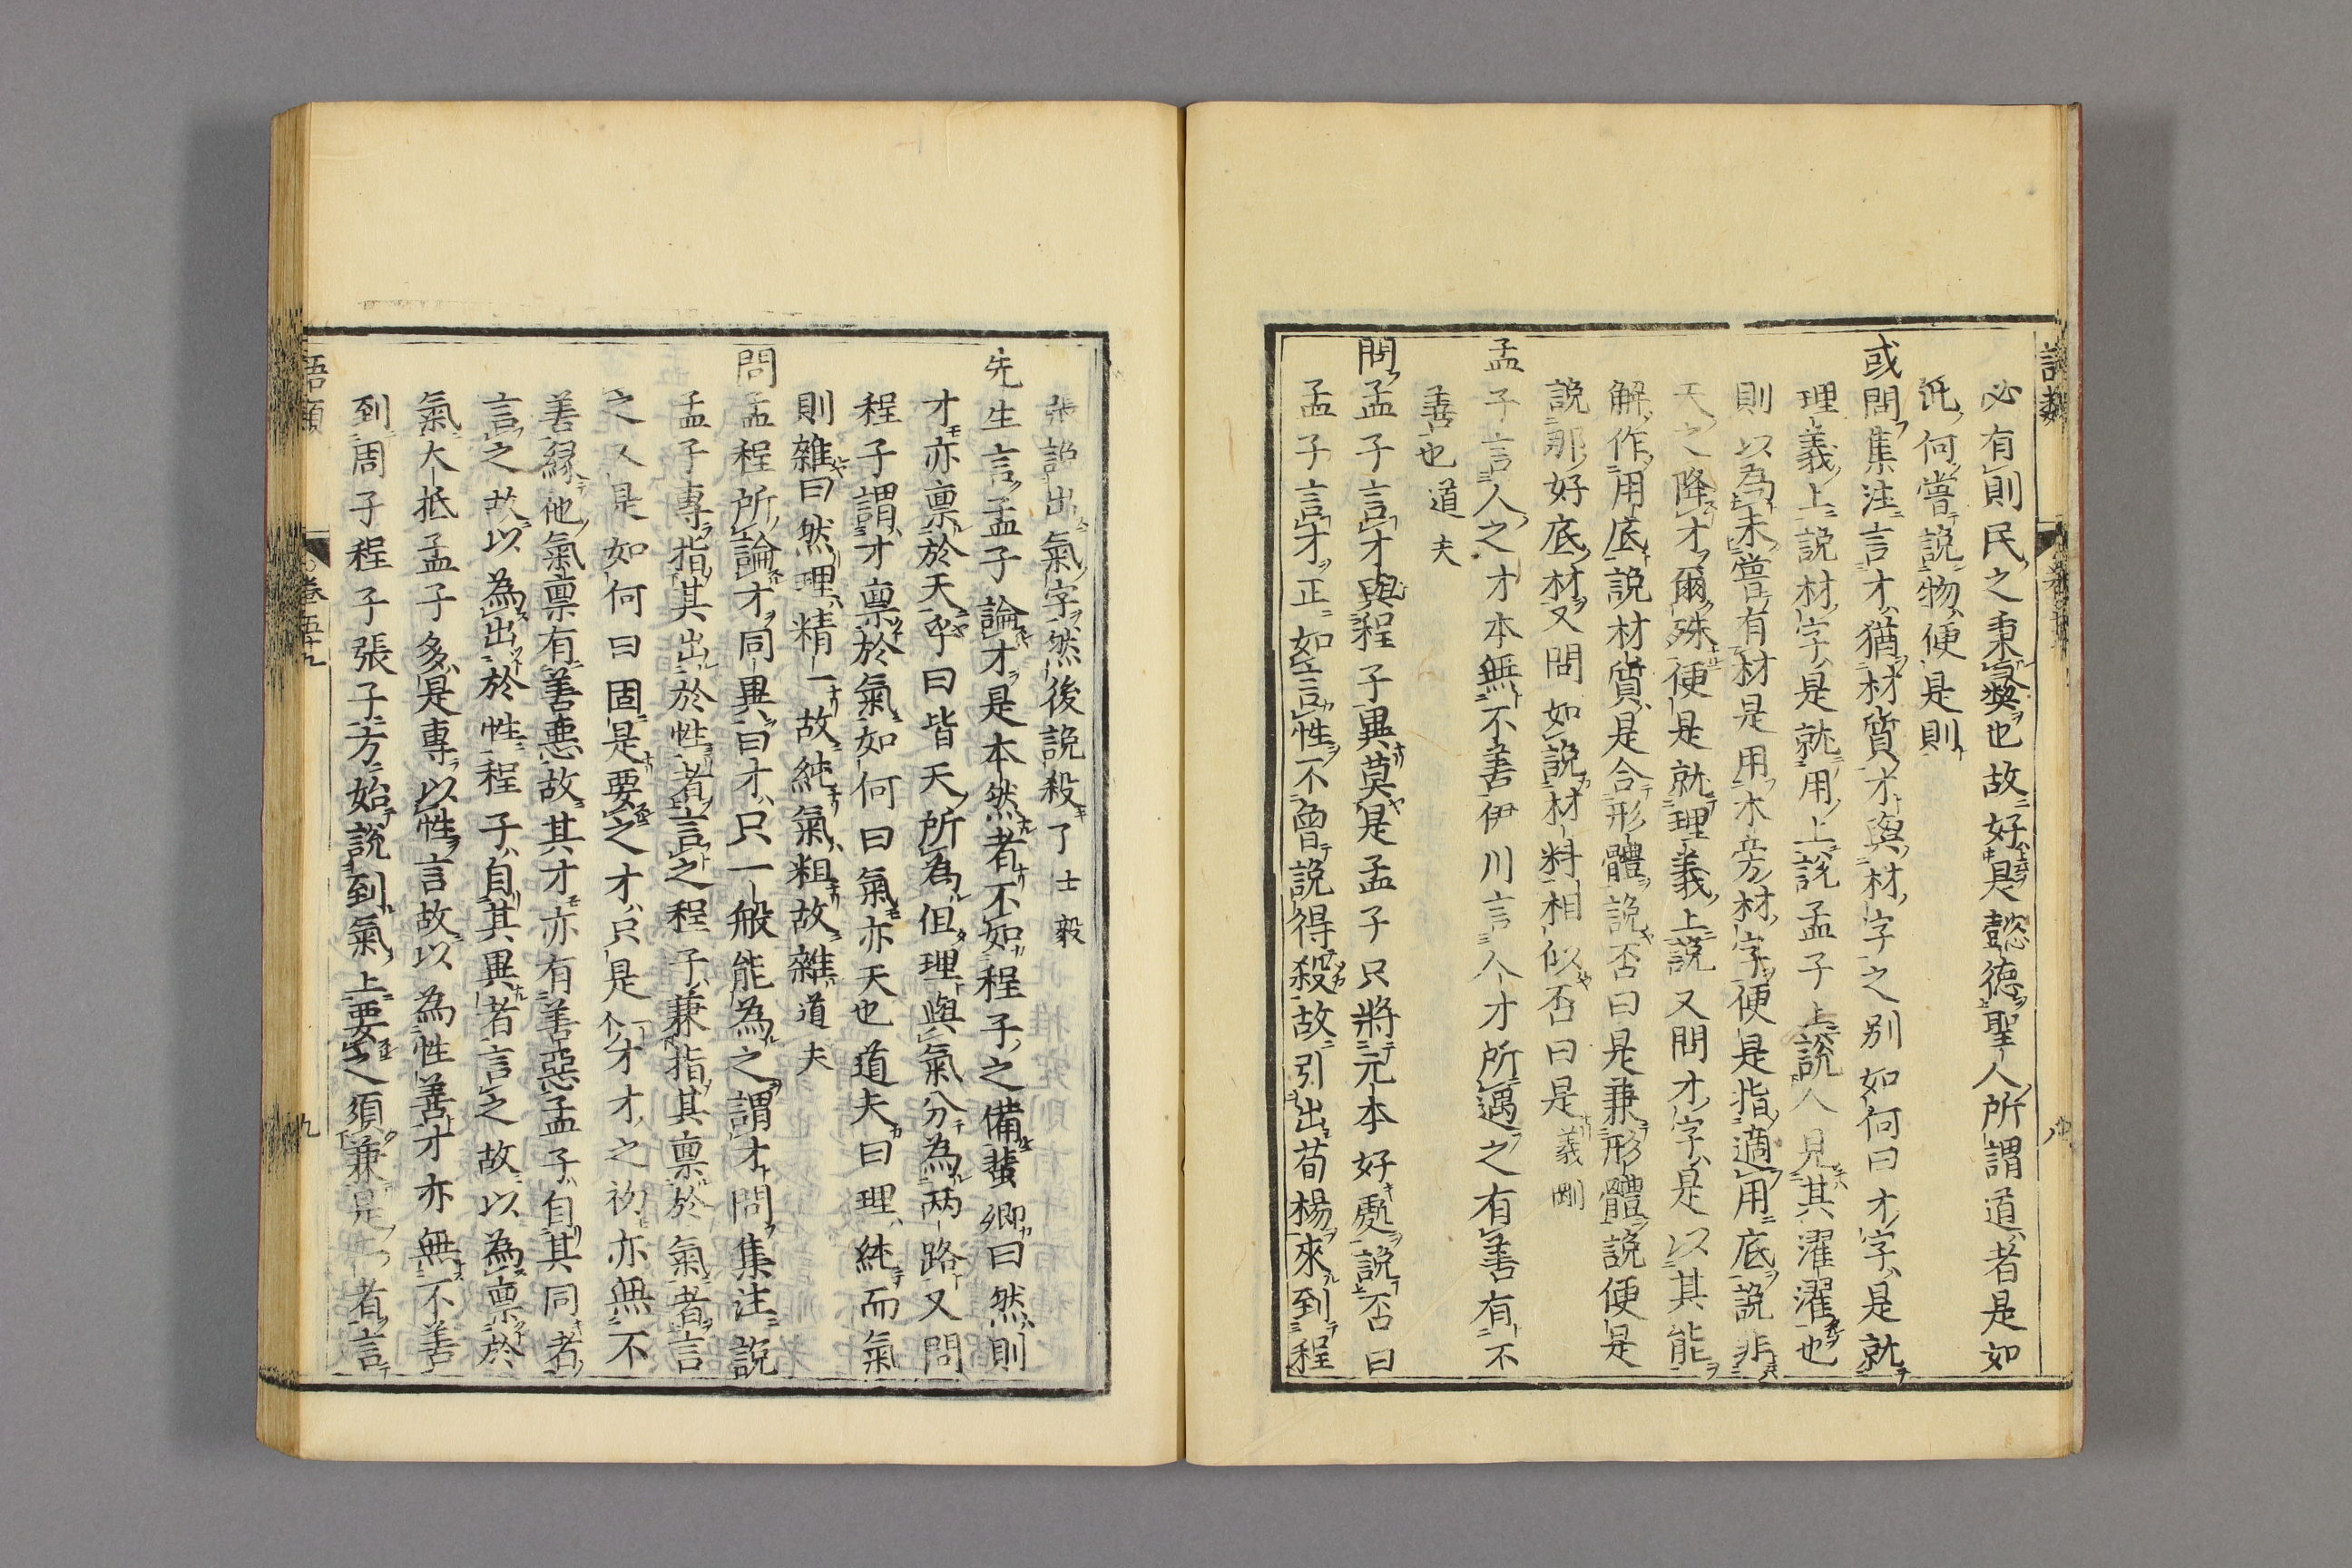 必有則民之秉彝也故好是懿德聖人所謂道者是如
此何嘗說物便是則
或問集注言才猶材質才與材字之別如何曰才字是就
理義上說材字是就用上說孟子上說人見其濯濯也
則以為未嘗有材是用木旁材字便是指適用底說非
天之降才爾殊便是就理義上說又問才字是以其能
解作用底說材質是合形體說否曰是兼形體說便是
說那好底材又問如說材料相似否曰是義剛
孟子言人之才本無不善伊川言人才所遇之有善有不
善也道夫
問孟子言才與程子異莫是孟子只將元本好處說否曰
孟子言才正如言性不曾說得殺故引出荀楊來到程
張說出氣字然後說殺了士毅
先生言孟子論才是本然者不如程子之備蜚卿曰然則
才亦稟於天乎曰皆天所為但理與氣分為两路又問
程子謂才稟於氣如何曰氣亦天也道夫曰理純而氣
則雜曰然理精一故純氣粗故雜道夫
問孟程所論才同異曰才只一般能為之謂才問集注說
孟子專指其出於性者言之程子兼指其稟於氣者言
之又是如何曰固是要之才只是一个才才之初亦無不
善緣他氣稟有善惡故其才亦有善惡孟子自其同者
言之故以為出於性程子自其異者言之故以為稟於
氣大抵孟子多是專以性言故以為性善才亦無不善
到周子程子張子方始說到氣上要之須兼是者言
語類
卷五十九
九